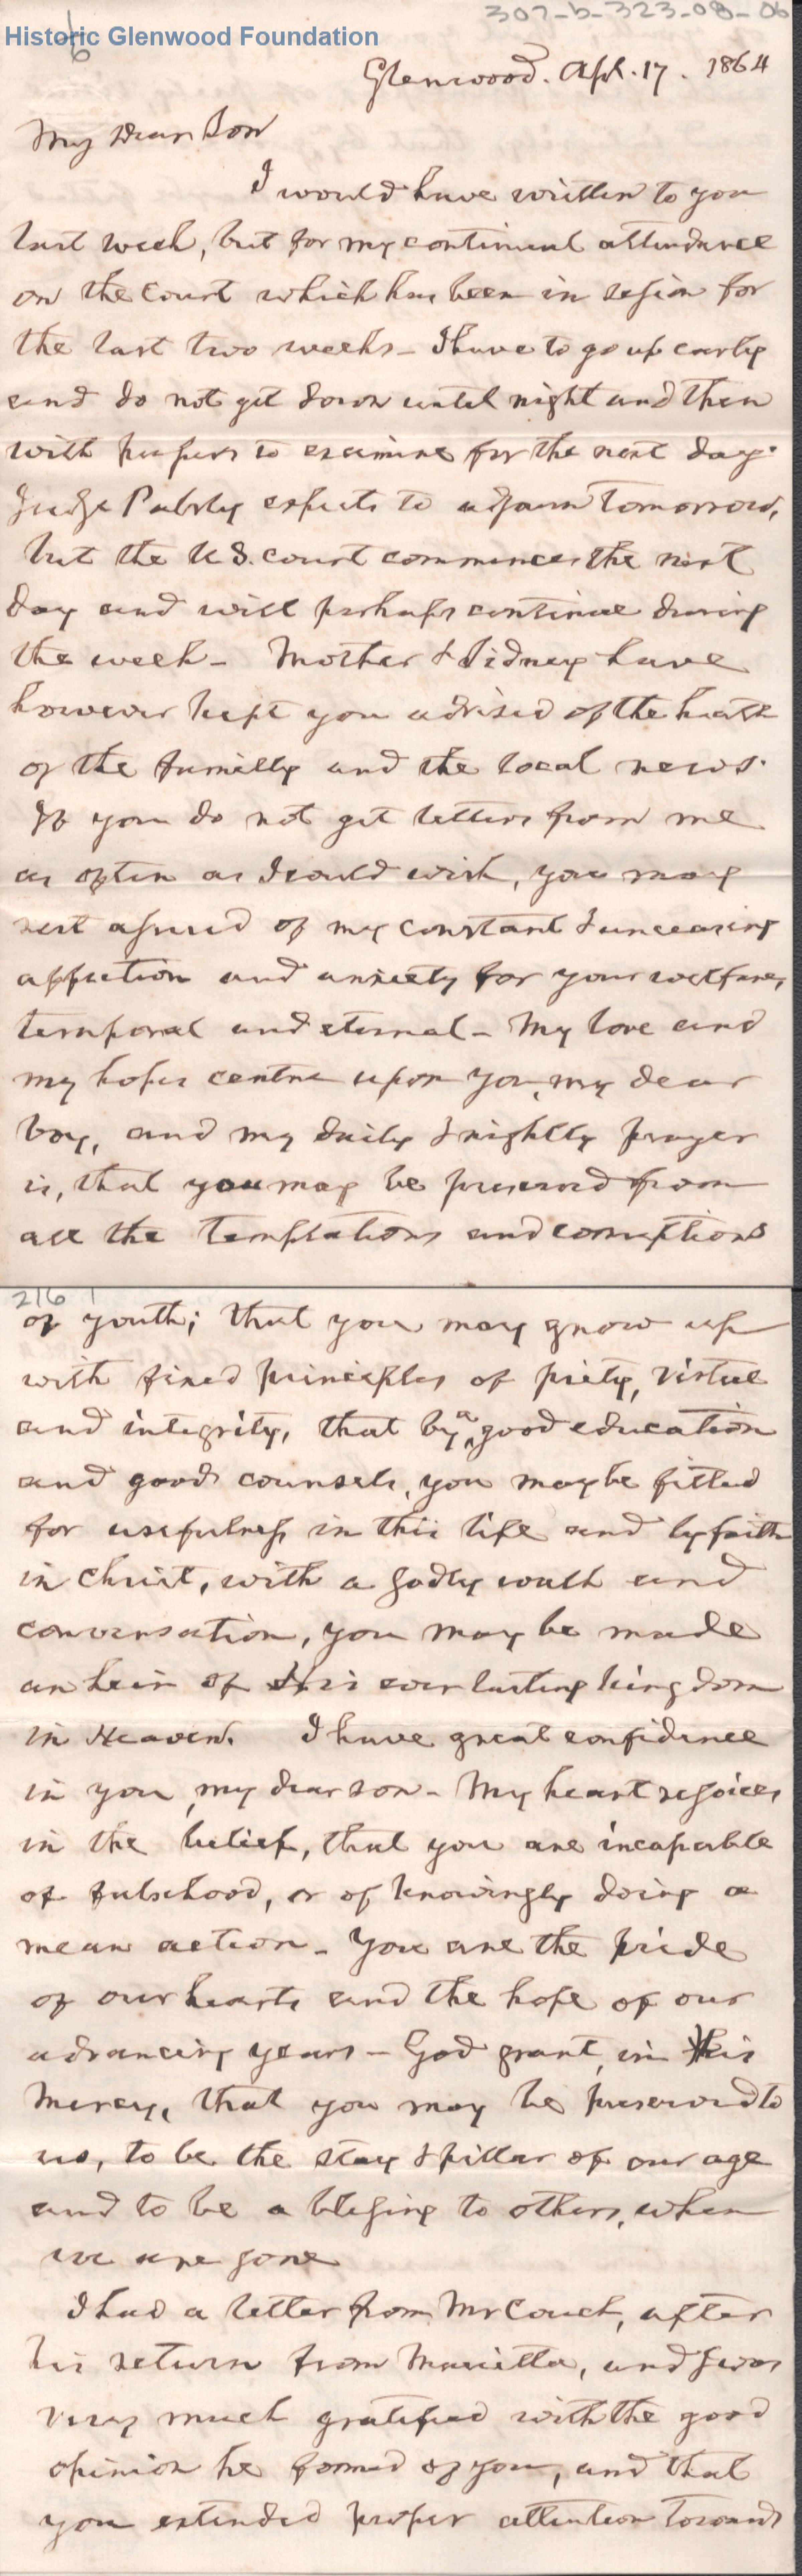 307-b-323-08-06
Historic Glenwood Foundation
Glenwood. Apl. 17. 1864
My Dear Son
I would have written to you
last week, but for my continual attendance
on the Court which has been in session for
the last two weeks - I have to go up early
and do not get down until night and then
with papers to examine for the next day.
Judge expects to adjourn tomorrow,
but the U S. court commences the next
day and will perhaps continue during
the week - Mother & Sidney have
however kept you advised of the health
of the familly and the local news.
If you do not get letters from me
as often as I could wish, you may
rest assured of my constant & unceasing
affection and anxiety for your welfare,
temporal and eternal - My love and
my hopes centre upon you, my dear
boy, and my daily & nightly prayer
is, that you may be preserved from
all the temptations and corruptions
216
of youth; that you may grow up
with fixed principles of piety, virtue
and integrity, that by a good education
and good counsels, you may be fitted
for usefulness in this life and by faith
in Christ, with a godly walk and
conversation, you may be made
an heir of His everlasting kingdom
in Heaven. I have great confidence
in you, my dear son - My heart rejoices
in the belief, that you are incapable
of falsehood, or of knowingly doing a
mean action - You are the pride
of our hearts and the hope of our
advancing years - God grant, in His
mercy, that you may be preserved to
us, to be the stay & pillar of our age
and to be a blessing to others, when
we are gone
I had a letter from Mr Couch, after
his return from Marietta, and I was
very much gratified with the good
opinion he formed of you, and that
you extended proper attention towards